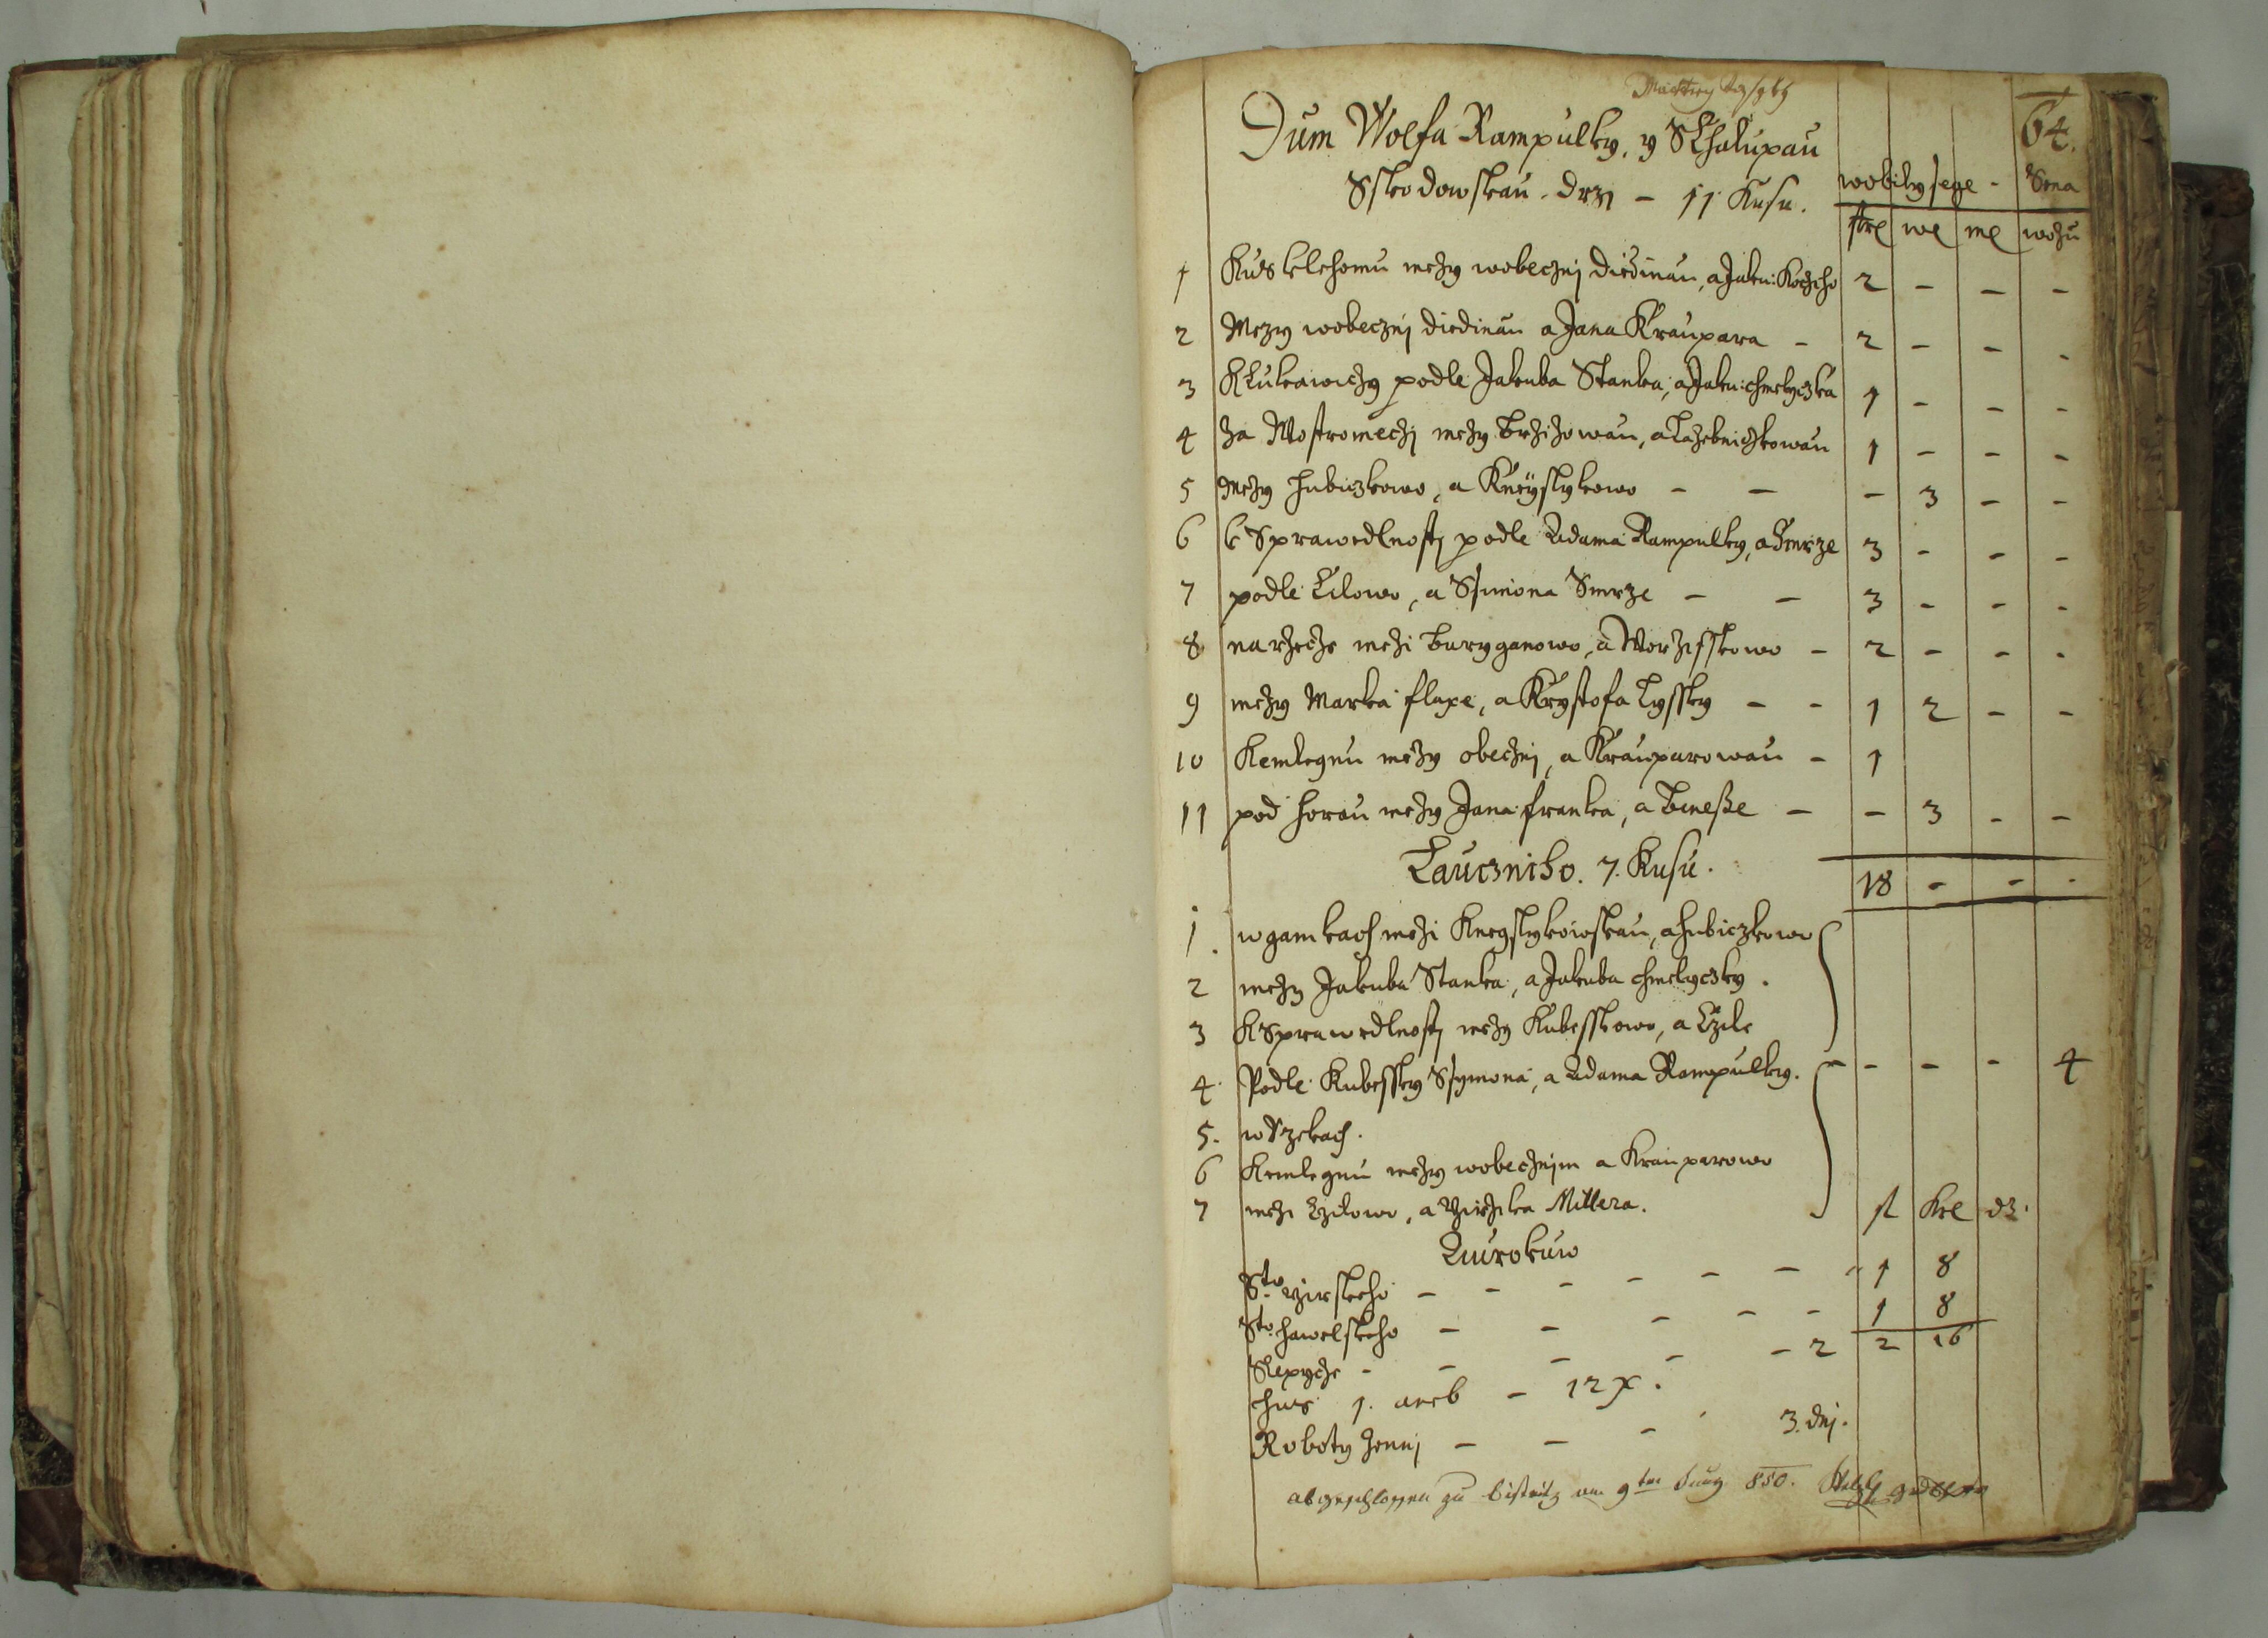 64.
Dum Wolfa Rampulky, y SChalupau
Sskodowskau. drzi - 11 Kusu.
wobily sege - Sena
stre we me wozu
1 Kus klehomu mezy wobeczni diedinau, a Jaku: 2 - - -
2 Mezy wobeczni diedinau a Jana Kraupara - 2 - - -
3 KLukawiczy podle Jakuba Stanka, a Jaku: Chmelyczka 1 - - -
4 Za Wostromeczi mezy Brzizowau, a Lazebniczkowau 1 - - -
5 mezy Hubiczkowo, a Kneyslykowo - - - 3 - -
6 k Sprawedlnosti podle Adama Rampulky, a Smrze 3 - - -
7 podle Lilowo, a Ssimona Smrze - - 3 - - -
8 na rzecze mezi Buryganowo, a Worzisskowo - 2 - - -
9 mezy Marka flaxe, a Krystofa Lyssky - - 1 2 - -
10 Kemlegnu mezy obeczni, a Krauparowau - 1
11 pod horau mezy Jana franka, a Beneße - - 3 - -
Laucznicho. 7. Kusu.
18 - - -
1. w gamkach mezi Knegslykowskau, a Hubiczkowo
2 mezy Jakuba Stanka, a Jakuba Chmelyczky.
3 KSprawedlnosti mezy Kubesskowo, a Lzile
4. Podle Kubessky Ssymona, a Adama Rampulky. - - - - 4
5. w Rzekach.
6 Kemlegnu mezy wobecznim a Krauparowo
7 mezi Lzilowo, a Millera. fl Kre dz.
Aurokuw
Sto girskeho - - - - - - 1 8
Sto hawelskeho - - - - - 1 8
Slepycze - - - - - 2 2 16
1. aneb - 12 x.
Roboty Zenni - - - 3. dni.
abgeschlossen zu Bistritz am 9ten 850.